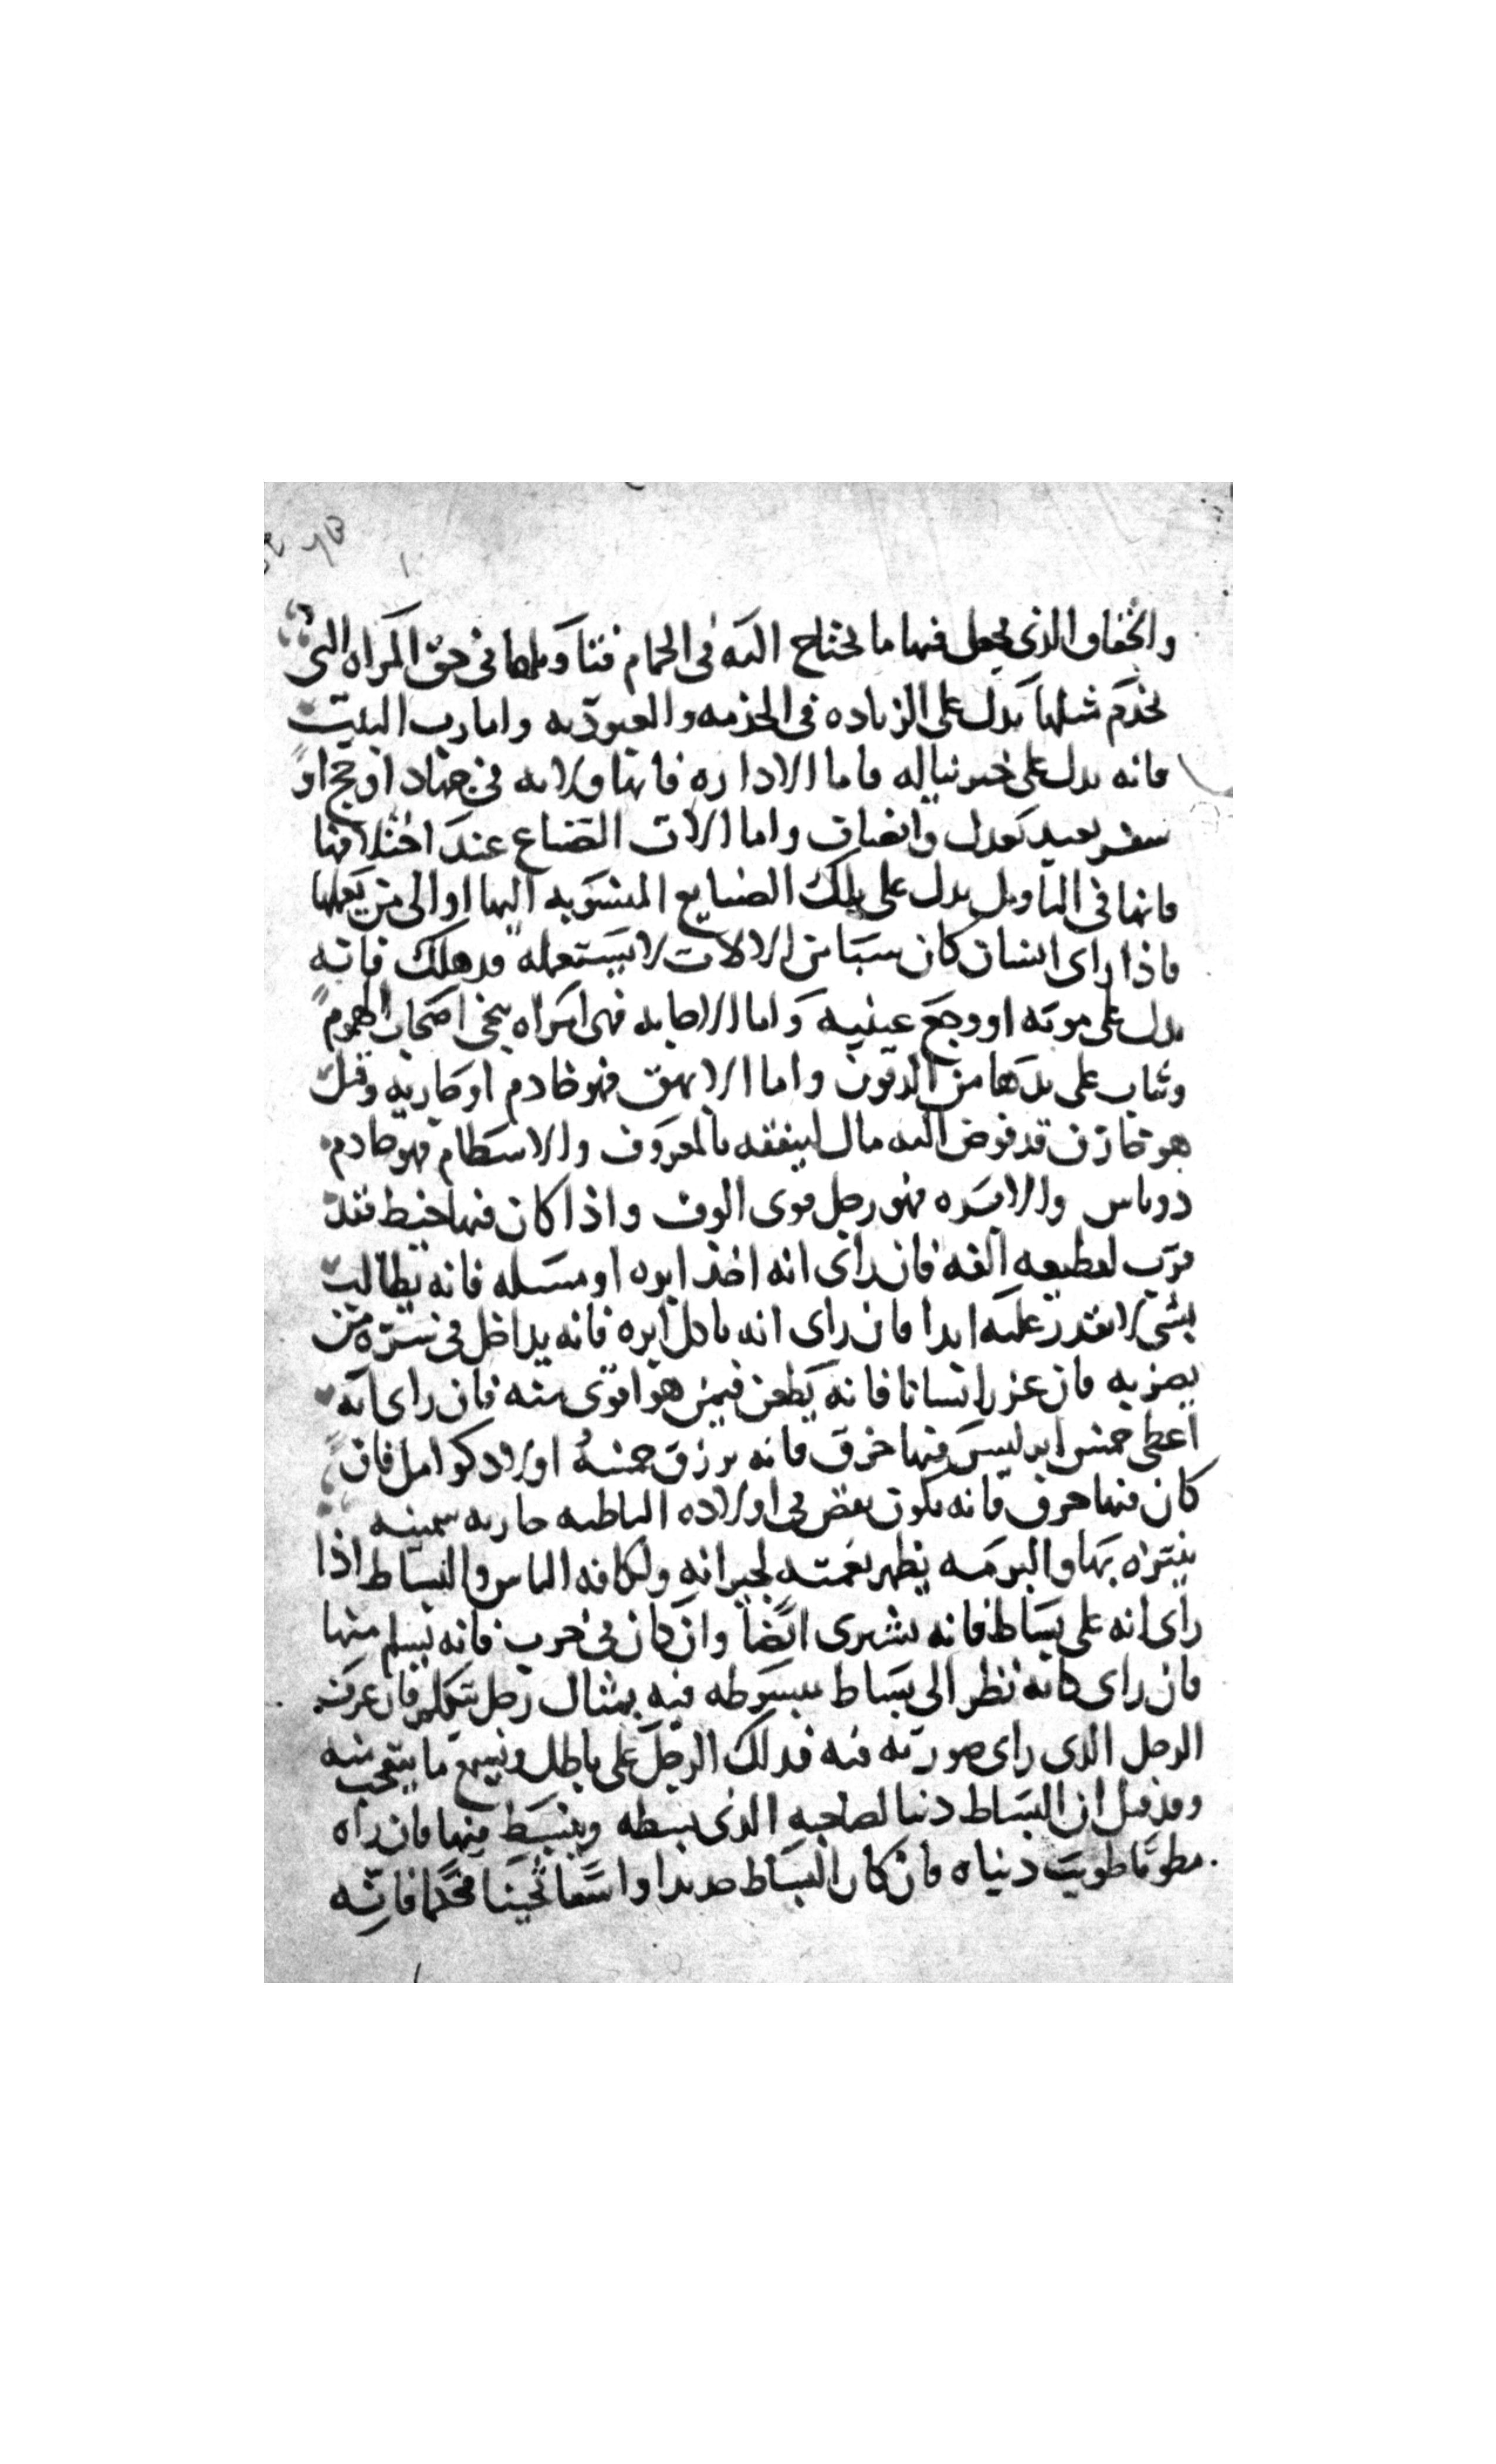 والخفاف الذى يجعل فيها ما يحتاج اليه فى الحمام فتاويلها فى حق المراه التى
تخدم شلها يدل على الزياده فى الخدمه والعبوديه واما رب البيت
فانه يدل على خير يناله فاما الاداره فانها ولايه فى جهاد او حج او
سفر بعيد بعدل وانصاف واما الالات الصناع عند اختلافها
فانها فى التاويل يدل على تلك الصنايع المنسوبه اليها او الى من يعملها
فاذا راى انسان كان سببا من الالات لا يستعمله قد هلك فانه
يدل على موته او وجع عينيه واما الاجابه فهى امراه سخى اصحاب الهموم
وتثاب على يدها من الديون واما الابهق فهو خادم او جاريه وقيل
هو خازن قد فوض اليه مال لينفقه بالمعروف والاسطام فهو خادم
ذو باس والابره فهو رجل قوى الوف واذا كان فيها خيط فقد
قرب لقطيعه الفه فان راى انه اخذ ابره او مسله فانه يطالب
بشى لا يقدر عليه ابدا فان راى انه ياكل ابره فانه يداخل فى ستره من
يضر به فان غرز انسانا فانه يطعن فيمن هو اقوى منه فان راى انه
اعطى خمس ابر ليس فيها خرق فانه يرزق خمسه اولاد كوامل فان
كان فيها خرق فانه يكون نقص فى اولاده الباطيه جاريه سمينه
يتنزه بها والبرمه يظهر نعمته لجيرانه ولكافه الناس والبساط اذا
راى انه على بساط فانه يشترى ايضا وان كان فى حرب فانه يسلم منها
فان راى كانه نظر الى بساط مبسوطه فيه بمثال رجل يتكلم فان عرف
الرجل الذى راى صورته فيه فذلك الرجل على باطل ويسمع ما يتعجب منه
وقد قيل ان البساط دنيا لصاحبه الذى يبسطه وينبسط فيها فان راه
مطويا طويت دنياه فان كان البساط جديدا واسعا ثخينا محكما فانه